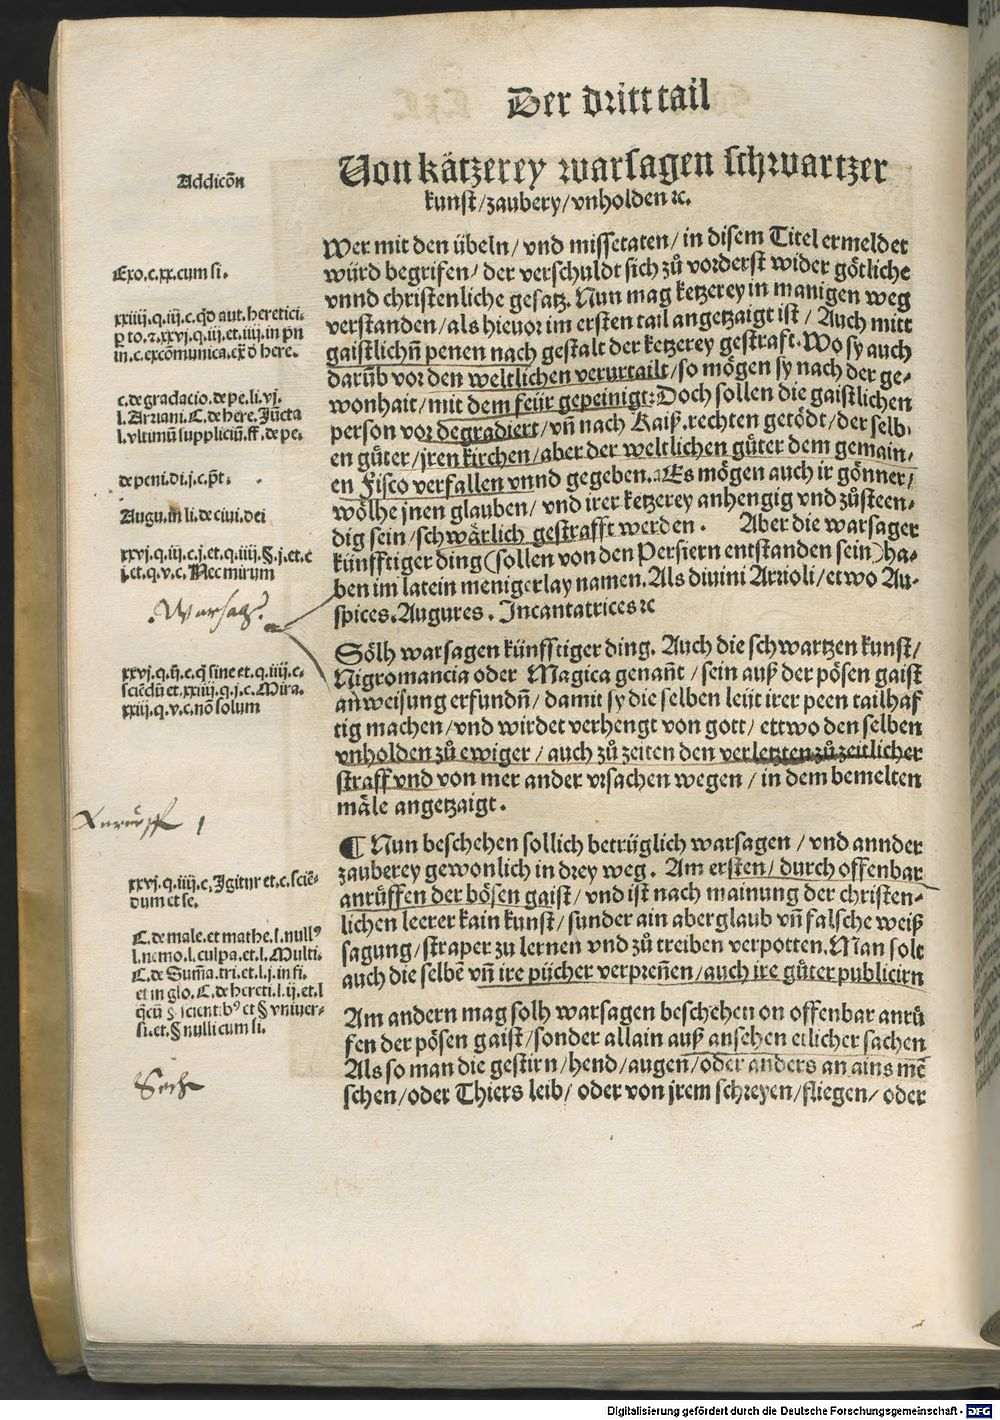 Der dritt tail
Von kätzerey warsagen schwartzer
kunst/zaubery/vnholden ⁊c.
Addicōn
Wer mit den übeln/ vnd missetaten/ in disem Titel ermeldet
würd begrifen/ der verschuldt sich zů vorderst wider götliche
vnnd christenliche gesatz. Nun mag ketzerey in manigen weg
verstanden/als hieuor im ersten tail angetzaigt ist/ Auch mitt
gaistlichn̄ penen nach gestalt der ketzerey gestraft. Wo sy auch
darūb vor den weltlichen verurtailt/so mögen sy nach der ge-
wonhait/mit dem feür gepeinigt: Doch sollen die gaistlichen
person vor degradiert/vn̄ nach Kaiß. rechten getödt/der selb-
en gůter/jren kirchen/aber der weltlichen gůter dem gemain-
en Fisco verfallen vnnd gegeben. Es mögen auch ir gönner/
wölhe jnen glauben/ vnd irer ketzerey anhengig vnd zůsteen-
dig sein/schwärlich gestrafft werden. Aber die warsager
künfftiger ding(sollen von den Persiern entstanden sein)ha-
ben im latein menigerlay namen. Als diuini Arrioli/etwo Au-
spices. Augures. Incantatrices ⁊c
Exo.c.xx.cum si.
xxiiij.q.iij.c.qđ aut.heretici.
ꝑ to.⁊.xxvj.q.iij.et.iiij.in pn̄
in.c.excōmunica.ex̄ đ here.
c.de gradacio.de pe.li.vj.
l.Arriani.C.de here.Jūcta
l.vltimū suppliciū.ff.de pe.
de peni.di.j.c.pn̄t.
Augu.in li.de ciui.dei
xxvj.q.iij.c.j.et.q.iiij.§.j.et.c
j.et.q.v.c.Nec mirum
Warsag
Sölh warsagen künfftiger ding. Auch die schwartzen kunst/
Nigromancia oder Magica genan̄t/sein auß der pösen gaist
anweisung erfundn̄/damit sy die selben leüt irer peen tailhaf
tig machen/vnd wirdet verhengt von gott/ ettwo den selben
vnholden zů ewiger/ auch zů zeiten den verletzten zů zeitlicher
straff vnd von mer ander vrsachen wegen/ in dem bemelten
mäle angetzaigt.
xxvj.q.ij.c.q̄ sine et.q.iiij.c.
sciēdū et.xxiiij.q.j.c.Mira.
xxiij.q.v.c.nō solum
¶ Nun beschehen sollich betrüglich warsagen/ vnd annder
zauberey gewonlich in drey weg. Am ersten/ durch offenbar
anrüffen der bösen gaist/ vnd ist nach mainung der christen-
lichen leerer kain kunst/sunder ain aberglaub vn̄ falsche weiß
sagung/straper zu lernen vnd zů treiben verpotten. Man solt
auch die selbē vn̄ ire půcher verpren̄en/auch ire gůter publicirn
xxvj.q.iiij.c.Igitur et.c.sciē-
dum et se.
C.de male.et mathe.l.null⁹
l.nemo.l.culpa.et.l.Multi.
C.de Sum̄a.tri.et.l.j.in fi.
et in glo.C.de hereti.l.ij.et.l
q̄cū §.scient.b⁹ et § vniuer-
si.et.§ nulli cum si.
Am andern mag solh warsagen beschehen on offenbar anrü
fen der pösen gaist/sonder allain auß ansehen etlicher sachen
Als so man die gestirn/hend/augen/oder anders an ains mē
schen/oder Thiers leib/ oder von jrem schreyen/fliegen/ oder
Digitalisierung gefördert durch die Deutsche Forschungsgemeinschaft - DFG